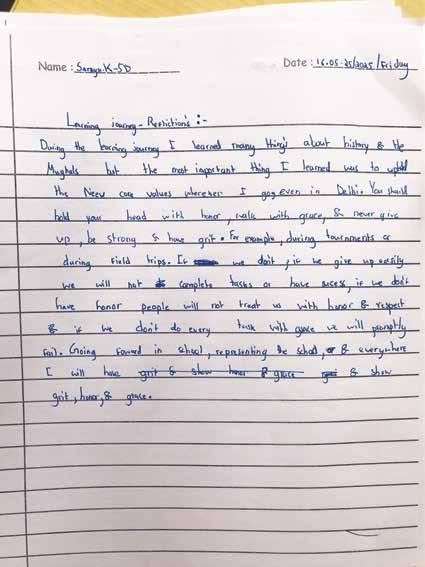 Name : Sarayu.K-5D
Date : 16.05.25/2025/Friday
Learning journey - Reflictions :-
During the learning journey I learned many things about history & the
Mughals but the most important thing I learned was to uphold
the Neev core values wherever I go, even in Delhi. You should
hold your head with honor, walk with grace, & never give
up, be strong & have grit. For example, during tournments or
during field trips. If we don't, if we give up easily
we will not complete tasks or have sucess, if we don't
have honor people will not treat us with honor & respect
& if we don't do every task with grace we will promptly
fail. Going foward in school, representing the school, or & everywhere
I will have grit & show honor & grace & show
grit, honor, & grace.